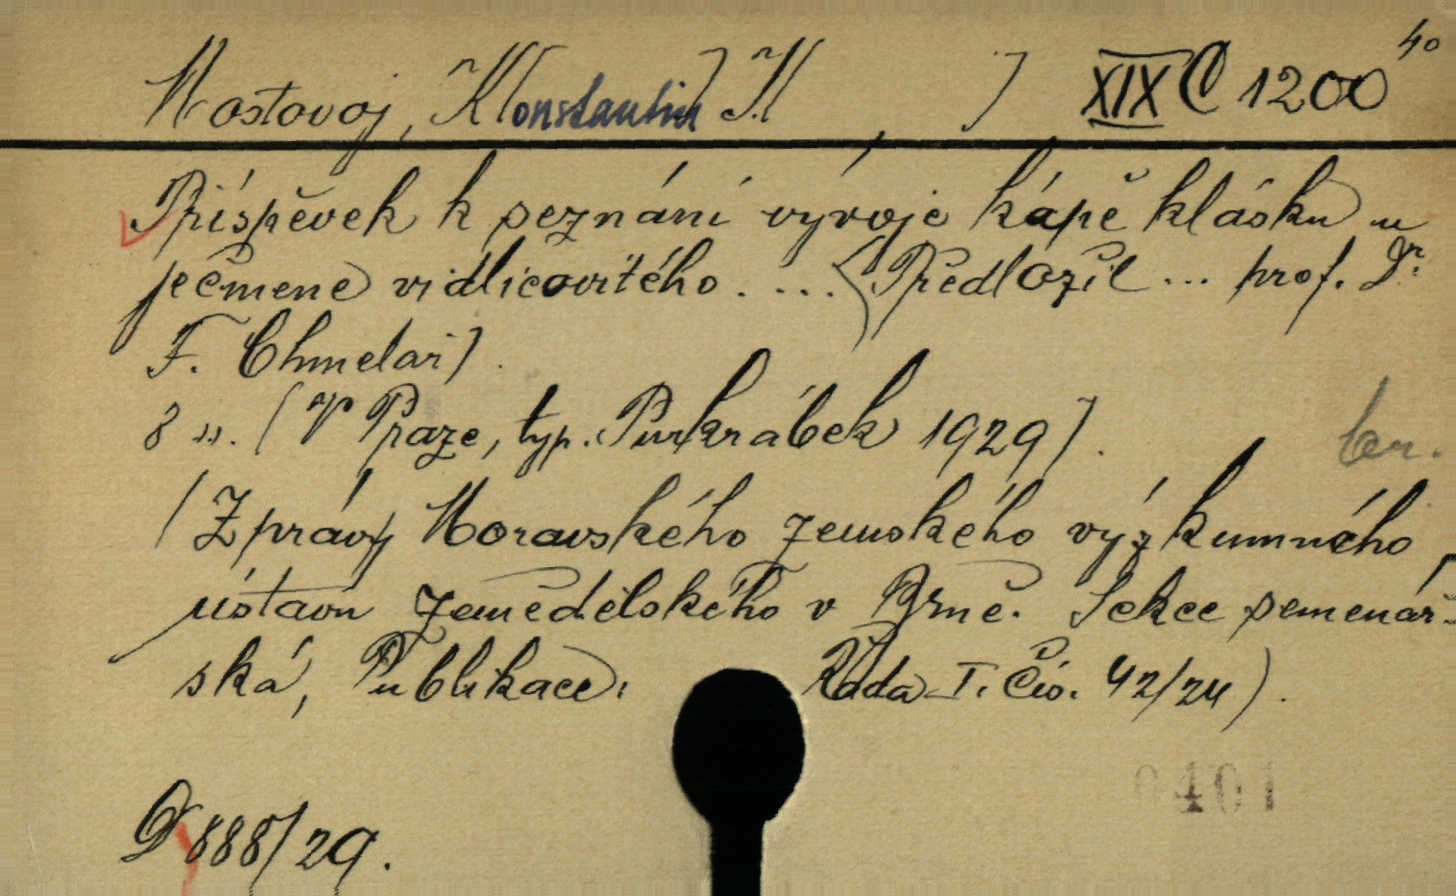 Mostovoj, K[onstantin] K[ ] XIX C 1200 40
Příspěvek k peznání vývoje kápě klásku u
ječmene vidlicovitého. ... (Předložil ... prof. Dr
F. Chmelař].
8 ss. [V Praze, typ. Purkrábek 1929].
br.
(Zprávy Moravského zemského výzkumného
ústavu zemědělského v Brně. Sekce semenář-
ská, Publikace: Řada I. Čís. 42/24).
0401
D 888/29.